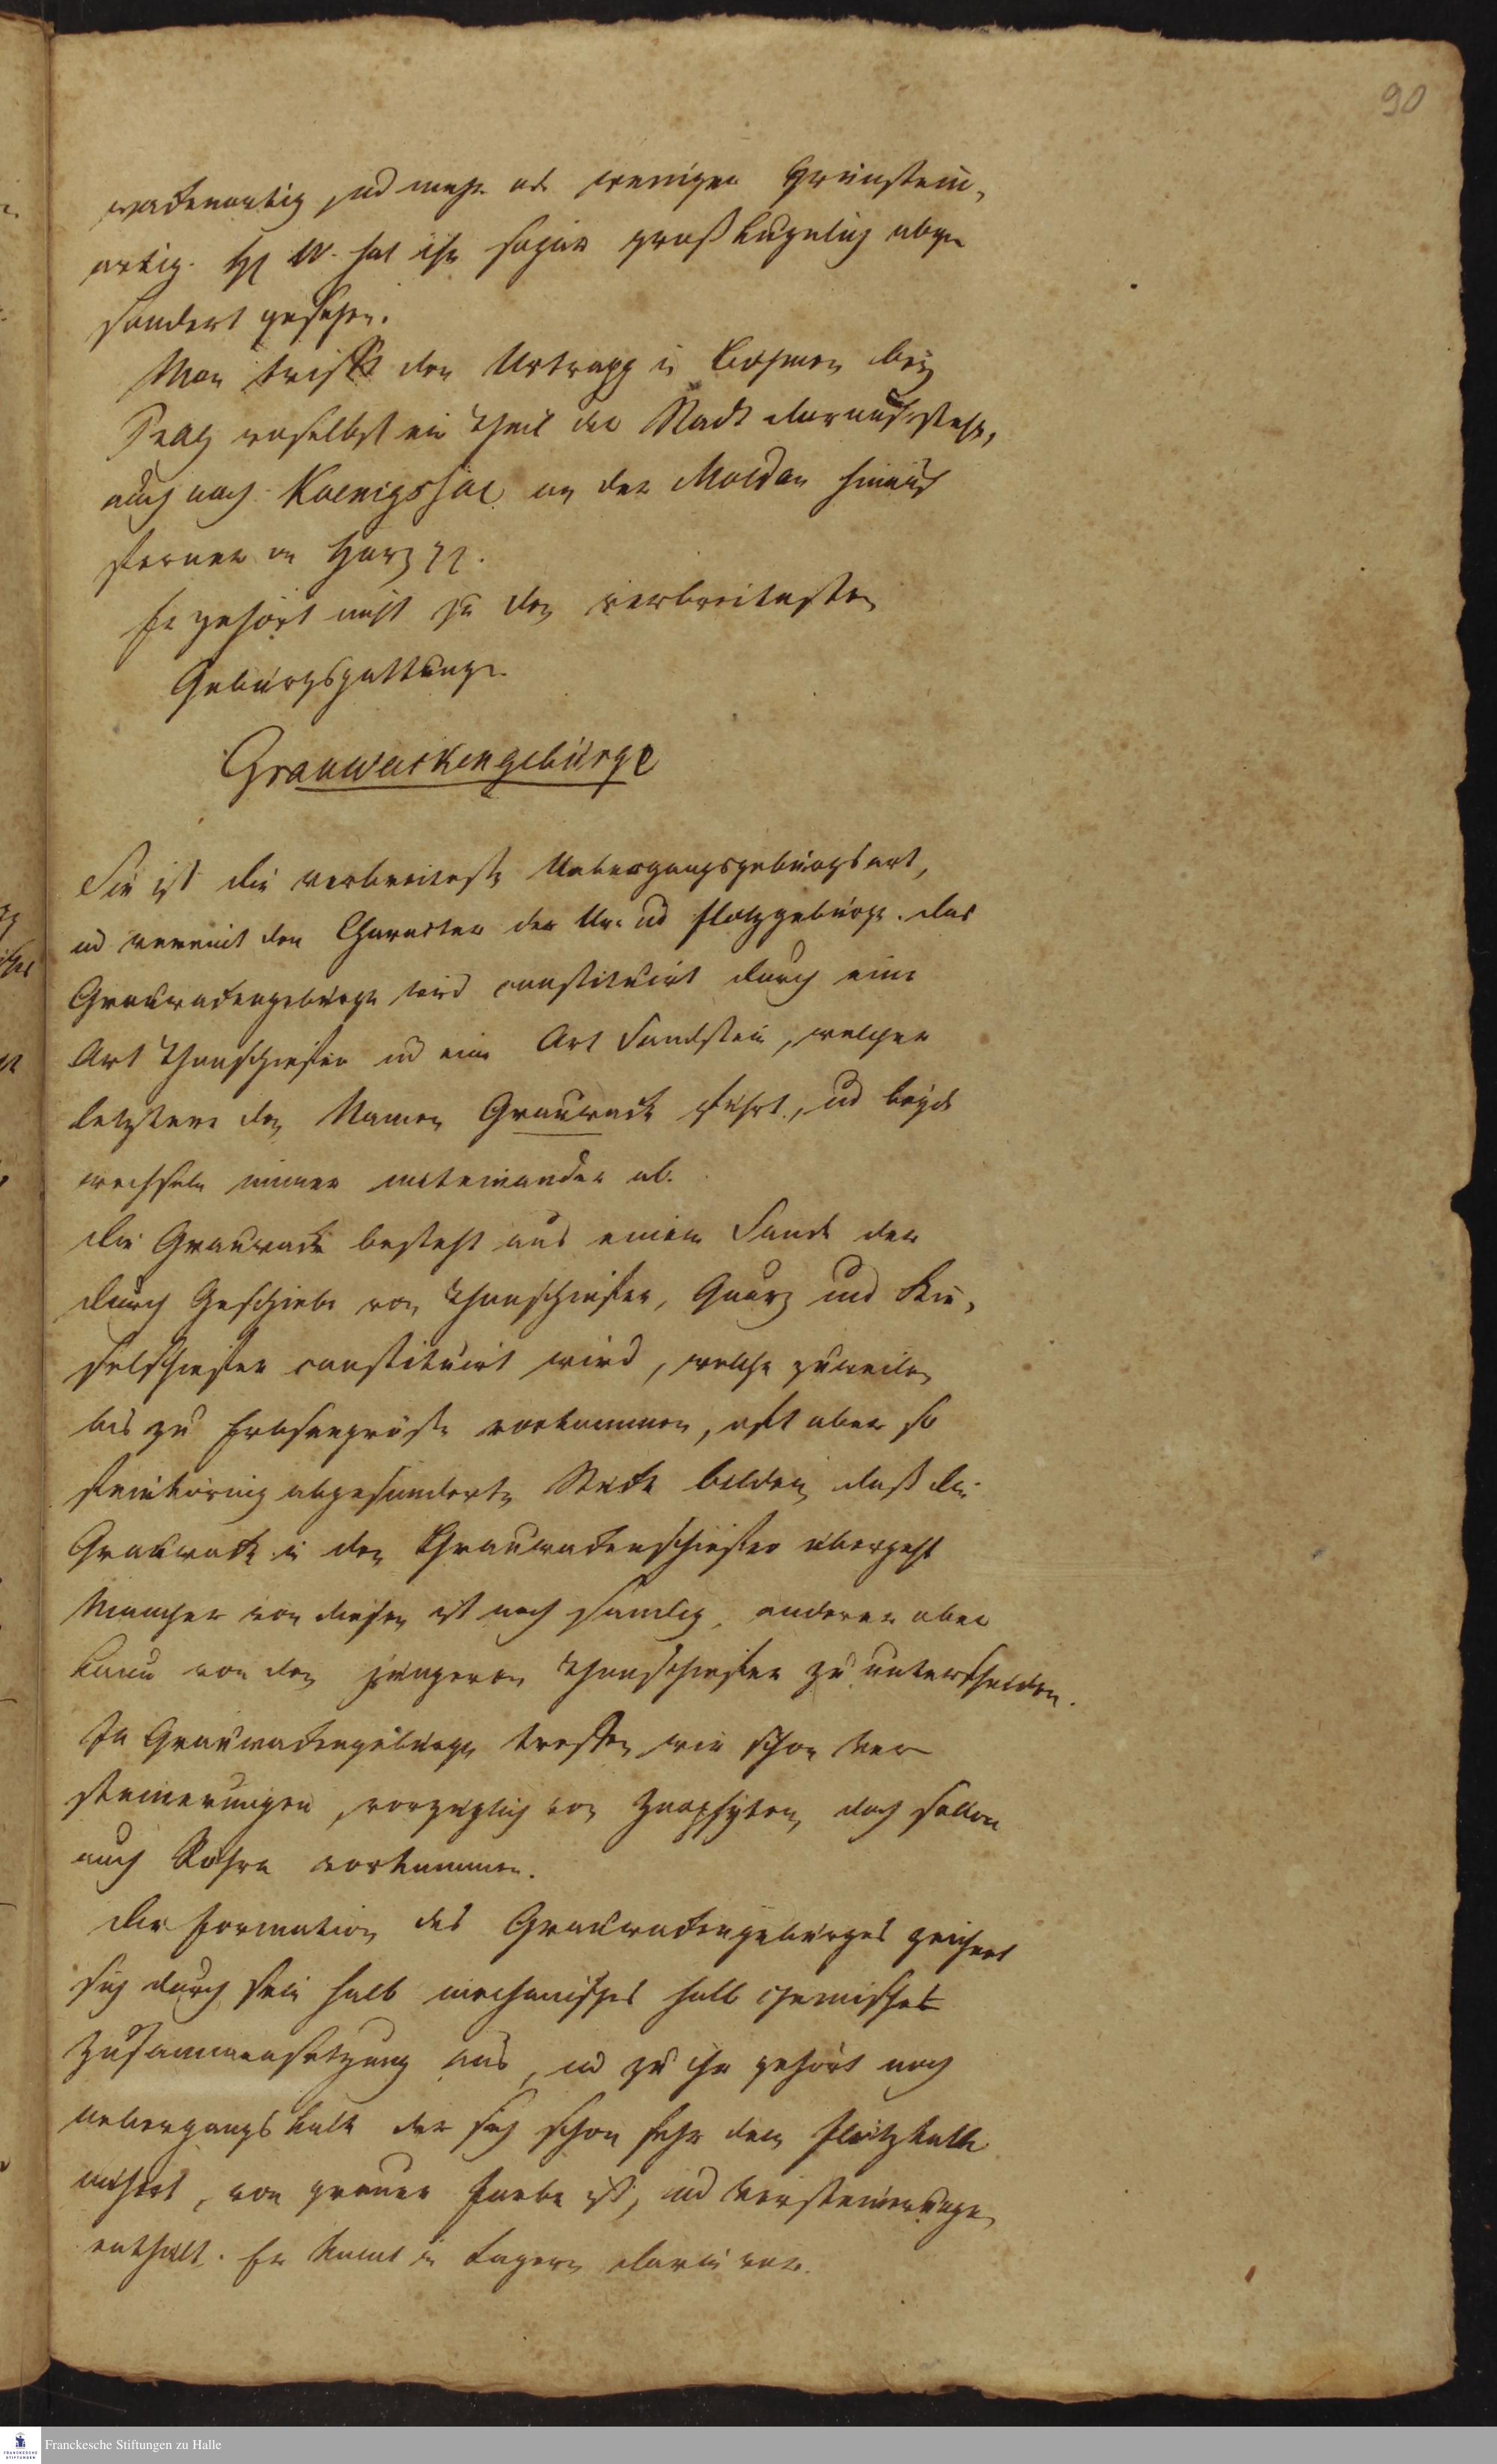 90
wackenartig und mehr od weniger Grünstein-
artig. H W. hat ihn sogar großkuglig abge
sondert gesehen.
Man trifft den Urtrapp in Böhmen bey
Prag woselbst ein Theil der Stadt darauf steht,
auch nach Koenigssaal an der Moldau hinauf
ferner im Harz pp.
Er gehört nicht zu den verbreitesten
Gebürgsgattungen.
Grauwackengebürge
Sie ist die verbreiteste Uebergangsgebürgsart,
ud vereint den Character der Ur- ud Flötzgebürge. Das
Grauwackengebürge wird constituirt durch eine
Art Thonschiefer ud eine Art Sandstein, welcher
letztere den Namen Grauwacke führt, ud beyde
wechseln immer miteinander ab.
Die Grauwacke besteht aus einem Sande der
durch Geschiebe von Thonschiefer, Quarz und Kie-
selschiefer constituirt wird, welche zuweilen
bis zu Erbsengröße vorkommen, oft aber so
feinkörnig abgesonderte Stücke bilden daß die
Grauwacke in den Grauwackenschiefer übergeht
Mancher von diesen ist noch sandig, anderer aber
kaum von den jüngeren Thonschiefer zu unterscheiden.
In Grauwackengebürgen treffen wir schon Ver
steinerungen, vorzüglich von Zoophyten, doch sollen
auch Rohre vorkommen.
Die Formation des Grauwackengebürges zeichnet
sich durch sein halb mechanisches halb chemisches
Zusammensetzung aus, ud zu ihr gehört noch
Uebergangskalk der sich schon sehr dem Flötzkalke
nähert, von grauer Farbe ist, ud Versteinerungen
enthält. Er kömt in Lagern darin vor.
Franckesche Stiftungen zu Halle